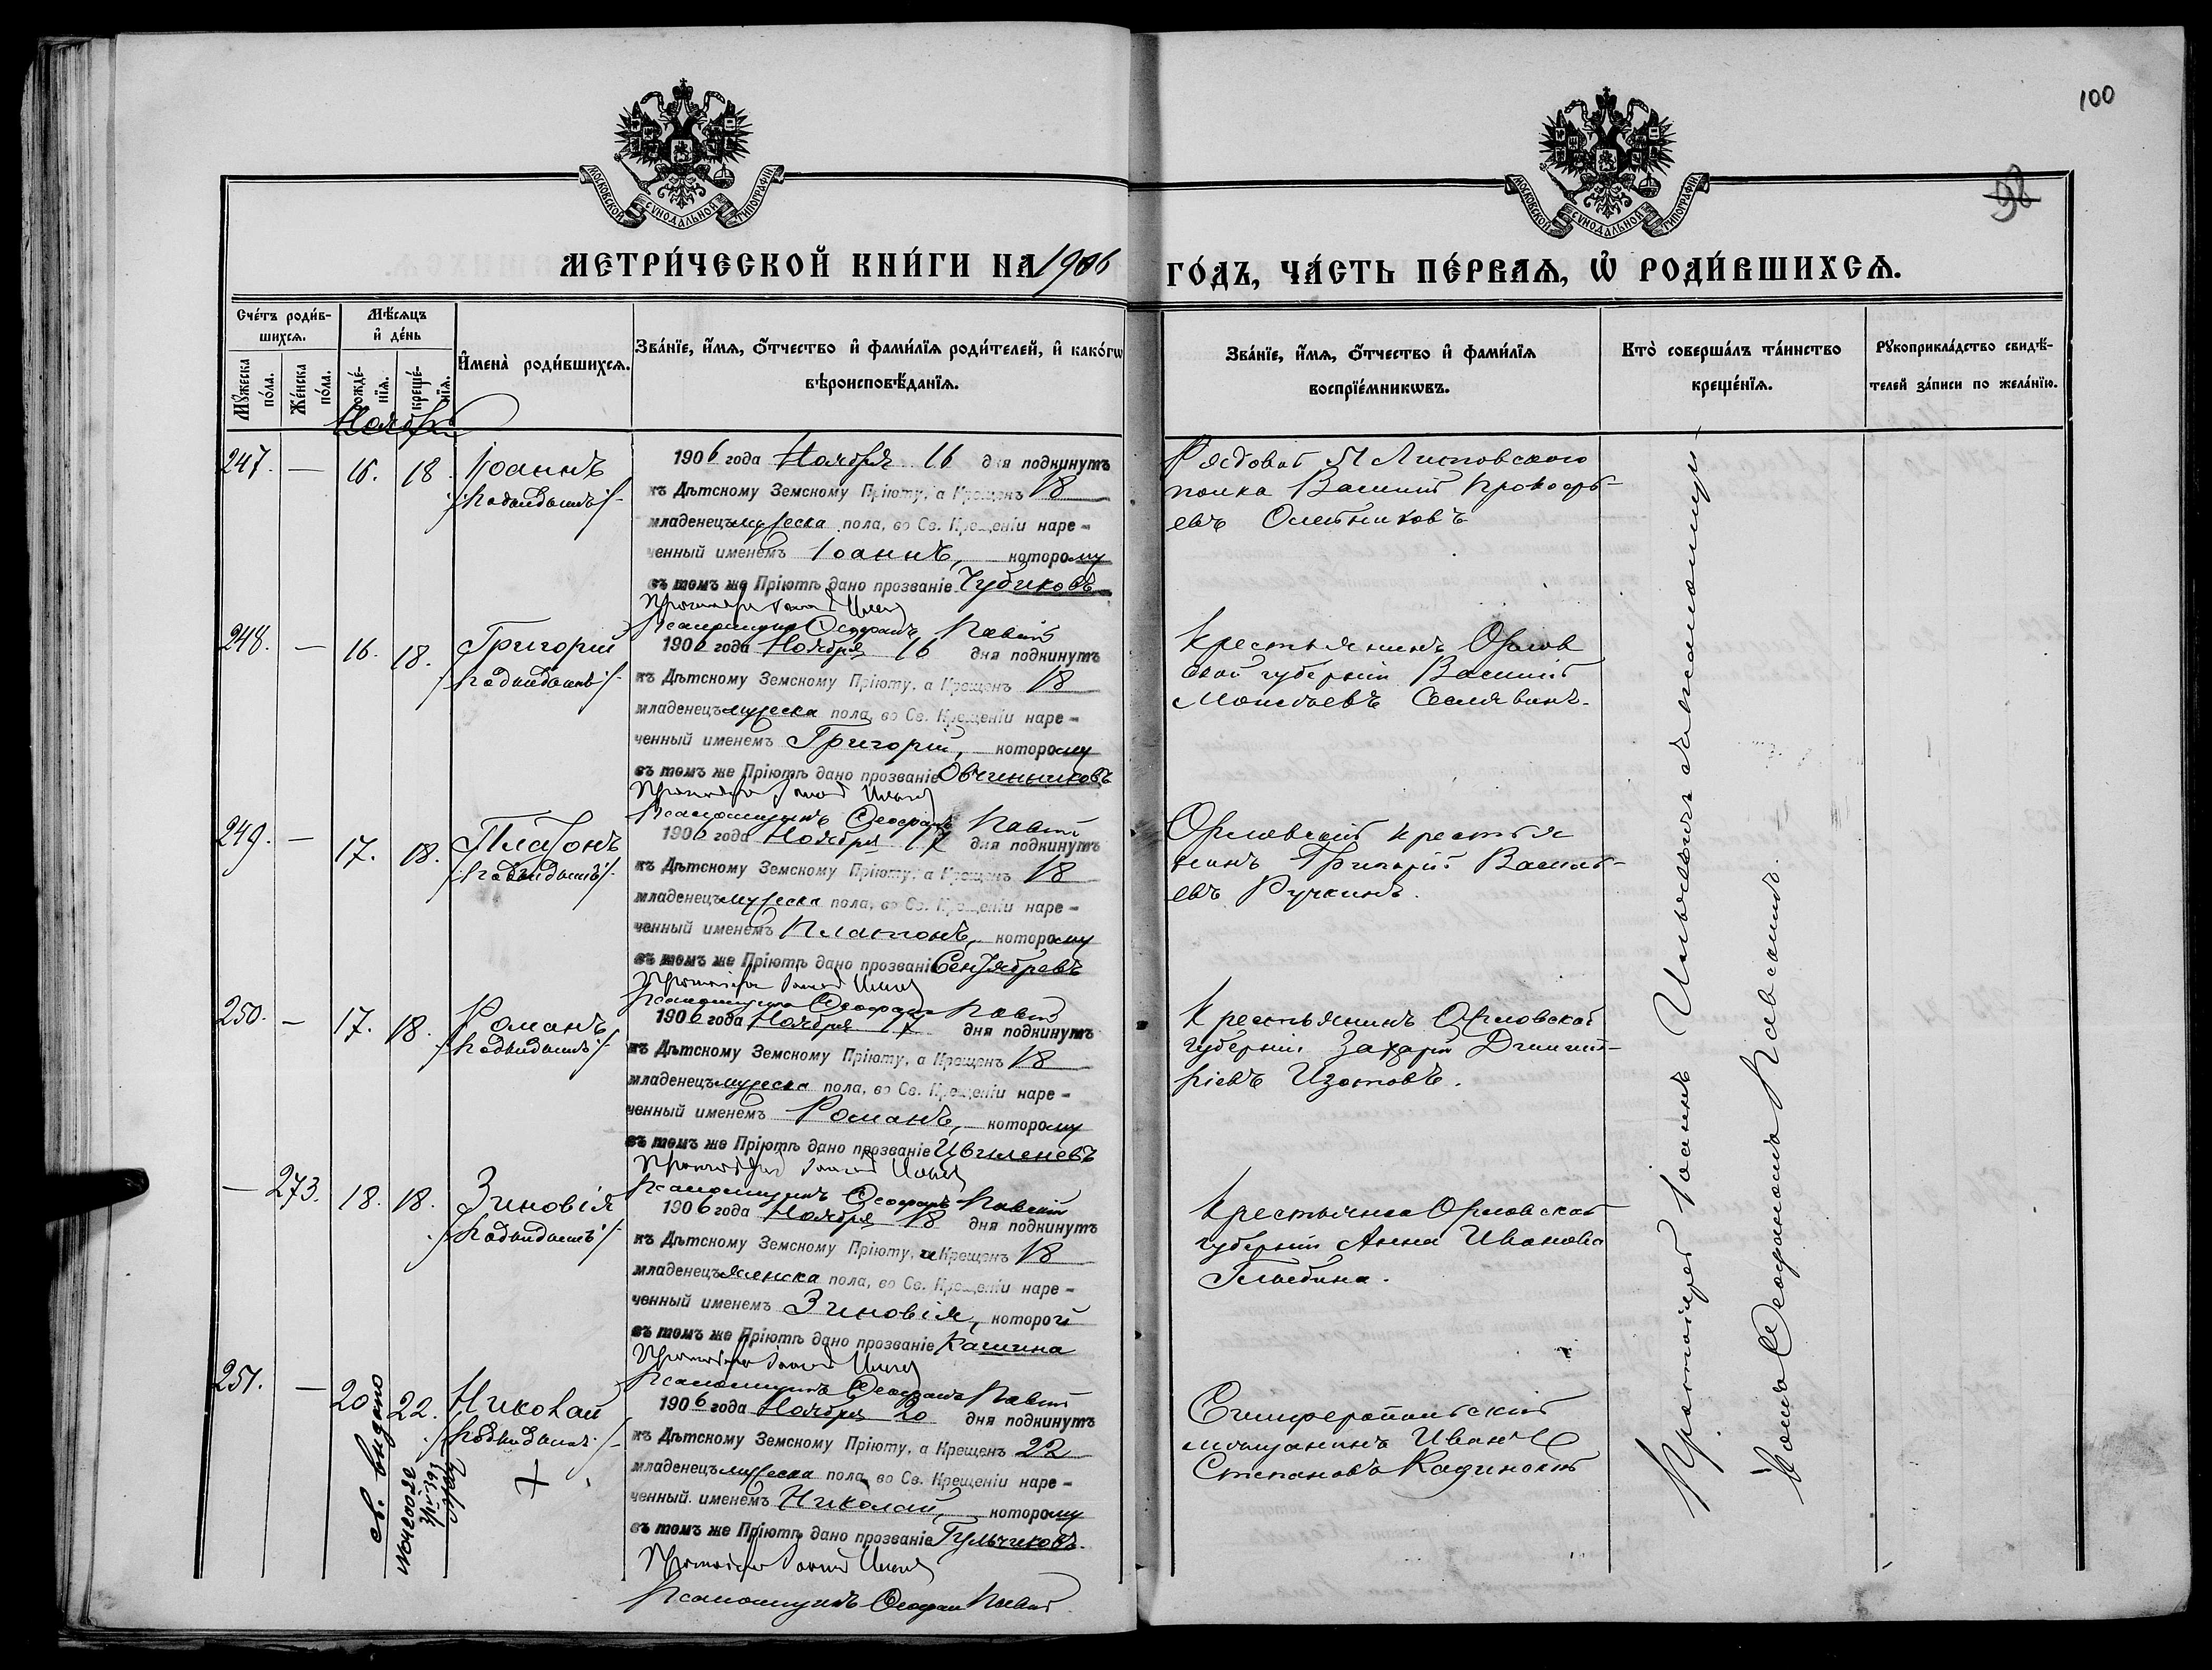 100
98
МОСКОВСКОЙ СУНОДАЛЬНОЙ ТИПОГРАФІИ
МОСКОВСКОЙ СУНОДАЛЬНОЙ ТИПОГРАФІИ
МЕТРИ́ЧЕСКОЙ КНИ́ГИ НА 1906
ГО́ДЪ, ЧА́СТЬ ПЕ́РВАѦ, Ѡ҆ РОДИ́ВШИХСѦ.
Сче́тъ роди́в-
шихсѧ.
Мѣ́сѧцъ
и҆ де́нь
Мꙋ́жеска
по́ла.
Же́нска
по́ла.
рожде́-
нїѧ.
креще́-
нїѧ.
И҆мена̀ роди́вшихсѧ.
Зва́нїе, и҆́мѧ, ѻ҆́тчество и҆ фами́лїѧ роди́телей, и҆ како́гѡ
вѣроисповѣ́данїѧ.
Зва́нїе, и҆́мѧ, ѻ҆́тчество и҆ фами́лїѧ
воспрїе́мникѡвъ.
Кто̀ соверша́лъ та́инство
креще́нїѧ.
Рꙋкоприкла́дство свидѣ́-
телей за́писи по жела́нїю.
Ноябрь
247. — 16. 18. Іоаннъ
/:подкидышъ:/
1906 года Ноября 16 дня подкинутъ
къ Дѣтскому Земскому Пріюту, а Крещенъ 18
младенецъ мужеска пола, во Св. Крещеніи наре-
ченный именемъ Іоаннъ, которому
въ томъ же Пріютѣ дано прозваніе Чубиковъ
Протоіерей Іоаннъ
Псаломщикъ Ѳеофанъ
Рядовой 51 Литовского
полка Василій Прокофь-
евъ Олейниковъ
248. — 16. 18. Григорій
/:подкидышъ:/
1906 года Ноября 16 дня подкинутъ
къ Дѣтскому Земскому Пріюту, а Крещенъ 18
младенецъ мужеска пола, во Св. Крещеніи наре-
ченный именемъ Григорій, которому
въ томъ же Пріютѣ дано прозваніе Овчинниковъ
Протоіерей Іоаннъ
Псаломщикъ Ѳеофанъ
Крестьянинъ Орлов
ской губерніи Василій
249. — 17. 18. Платонъ
/:подкидышъ:/
1906 года Ноября 17 дня подкинутъ
къ Дѣтскому Земскому Пріюту, а Крещенъ 18
младенецъ мужеска пола, во Св. Крещеніи наре-
ченный именемъ Платонъ, которому
въ томъ же Пріютѣ дано прозваніе Сентябревъ
Протоіерей Іоаннъ
Псаломщикъ Ѳеофанъ
Орловскій крестья
нинъ Григорій Василь-
евъ Ручкинъ.
250. — 17. 18. Романъ
/:подкидышъ:/
1906 года Ноября 17 дня подкинутъ
къ Дѣтскому Земскому Пріюту, а Крещенъ 18
младенецъ мужеска пола, во Св. Крещеніи наре-
ченный именемъ Романъ, которому
въ томъ же Пріютѣ дано прозваніе
Протоіерей Іоаннъ
Псаломщикъ Ѳеофанъ
Крестьянинъ Орловской
губерніи Захарій Димит-
ріевъ Изотовъ.
— 273. 18. 18. Зиновія
/:подкидышъ:/
1906 года Ноября 18 дня подкинутъ
къ Дѣтскому Земскому Пріюту, а Крещенъ 18
младенецъ женска пола, во Св. Крещеніи наре-
ченный именемъ Зиновія, которой
въ томъ же Пріютѣ дано прозваніе Кашина
Протоіерей Іоаннъ
Псаломщикъ Ѳеофанъ
Крестьянка Орловской
губерніи Анна Иванова
251. — 20 22. Николай
/:подкидышъ:/
св. выдано
1906 года Ноября 20 дня подкинутъ
къ Дѣтскому Земскому Пріюту, а Крещенъ 22
младенецъ мужеска пола, во Св. Крещеніи наре-
ченный именемъ Николай, которому
въ томъ же Пріютѣ дано прозваніе Гульчиковъ.
Протоіерей Іоаннъ
Псаломщикъ Ѳеофанъ
Симферопольскій
мѣщанинъ Иванъ
Степановъ
Протоіерей Іоаннъ съ псаломщи-
комъ Ѳеофаномъ